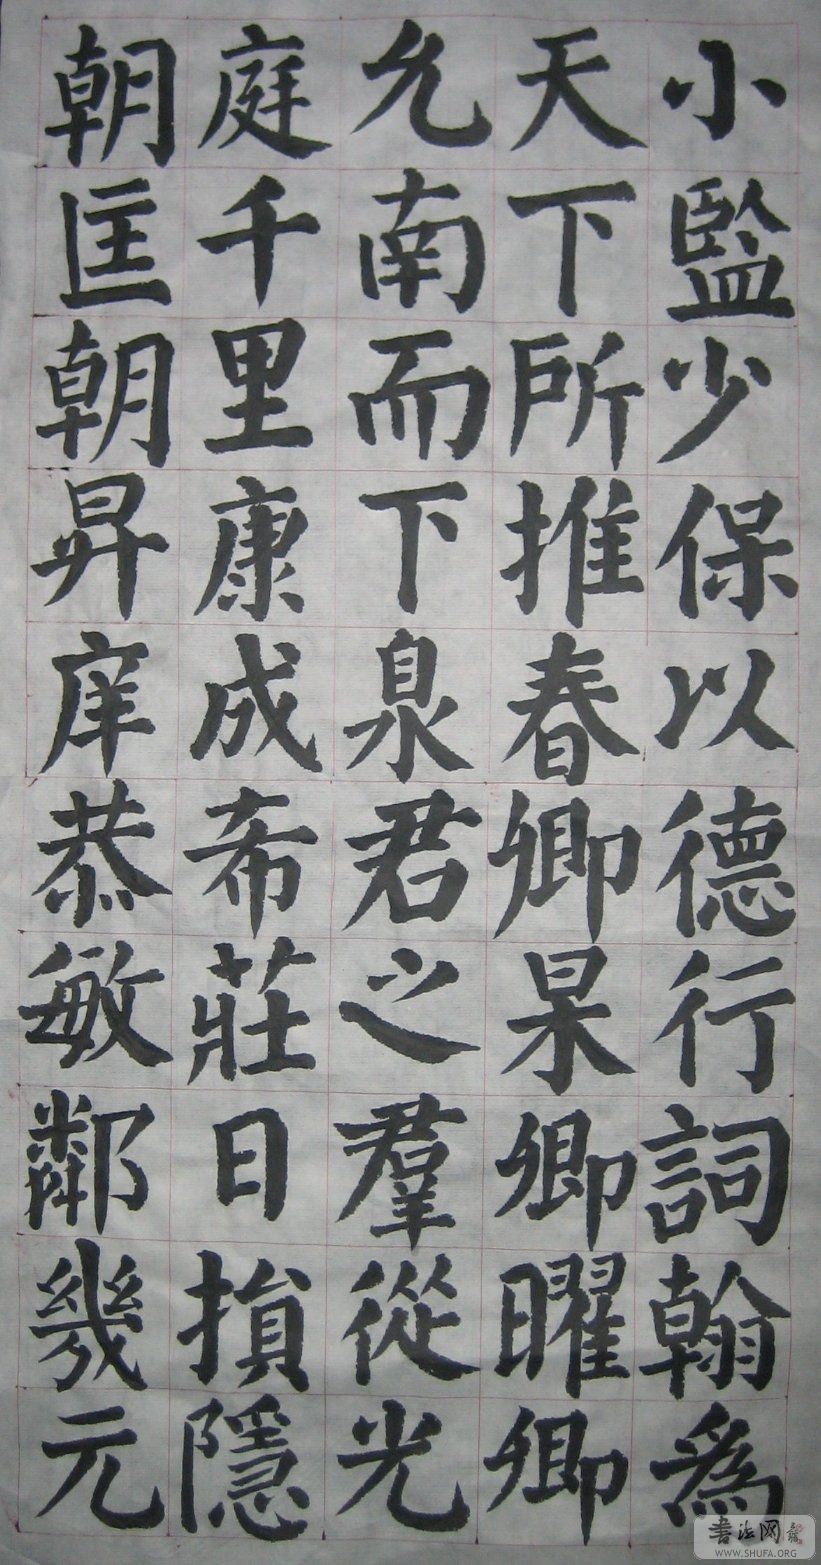 小監少保以德行詞翰為
天下所推春卿杲卿曜卿
允南而下泉君之羣從光
庭千里康成希莊日損隱
朝匡朝昇庠恭敏鄰幾元
書法网
WWW.SHUFA.ORG